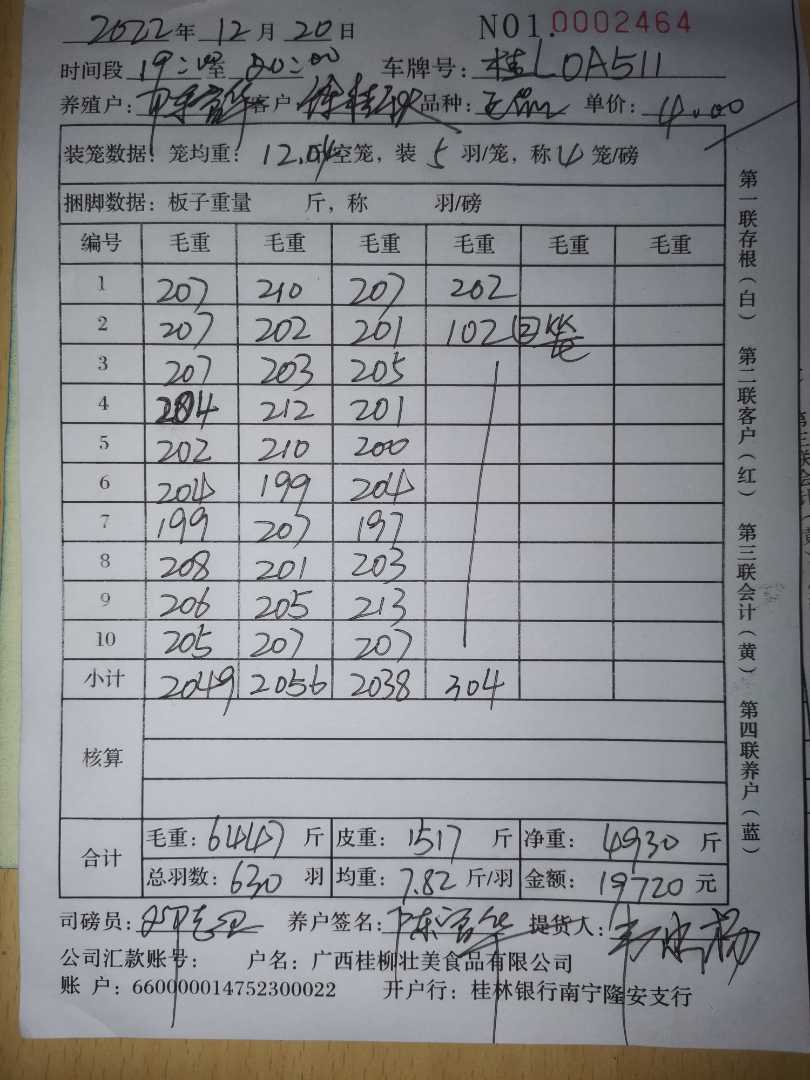 2022年 12月 20日 NO1.0002464
时间段 19:口至 20:00 车牌号: 桂L0A511
养殖户: 陈富华 客户: 品种: 单价: 4.00
装笼数据: 笼均重: 12.04 空笼, 装 5 羽/笼, 称 4 笼/磅
捆脚数据: 板子重量 斤, 称 羽/磅
编号 毛重 毛重 毛重 毛重 毛重 毛重
1 207 210 207 202
2 207 202 201 102 ②笼
3 207 203 205
4 204 212 201
5 202 210 200
6 204 199 204
7 199 207 197
8 208 201 203
9 206 205 213
10 205 207 207
小计 2049 2056 2038 304
核算
合计 毛重: 6447 斤 皮重: 1517 斤 净重: 4930 斤
总羽数: 630 羽 均重: 7.82 斤/羽 金额: 19720 元
司磅员: 养户签名: 陈富华 提货人:
公司汇款账号: 户名: 广西桂柳壮美食品有限公司
账 户: 660000014752300022 开户行: 桂林银行南宁隆安支行
第一联存根(白) 第二联客户(红) 第三联会计(黄) 第四联养户(蓝)